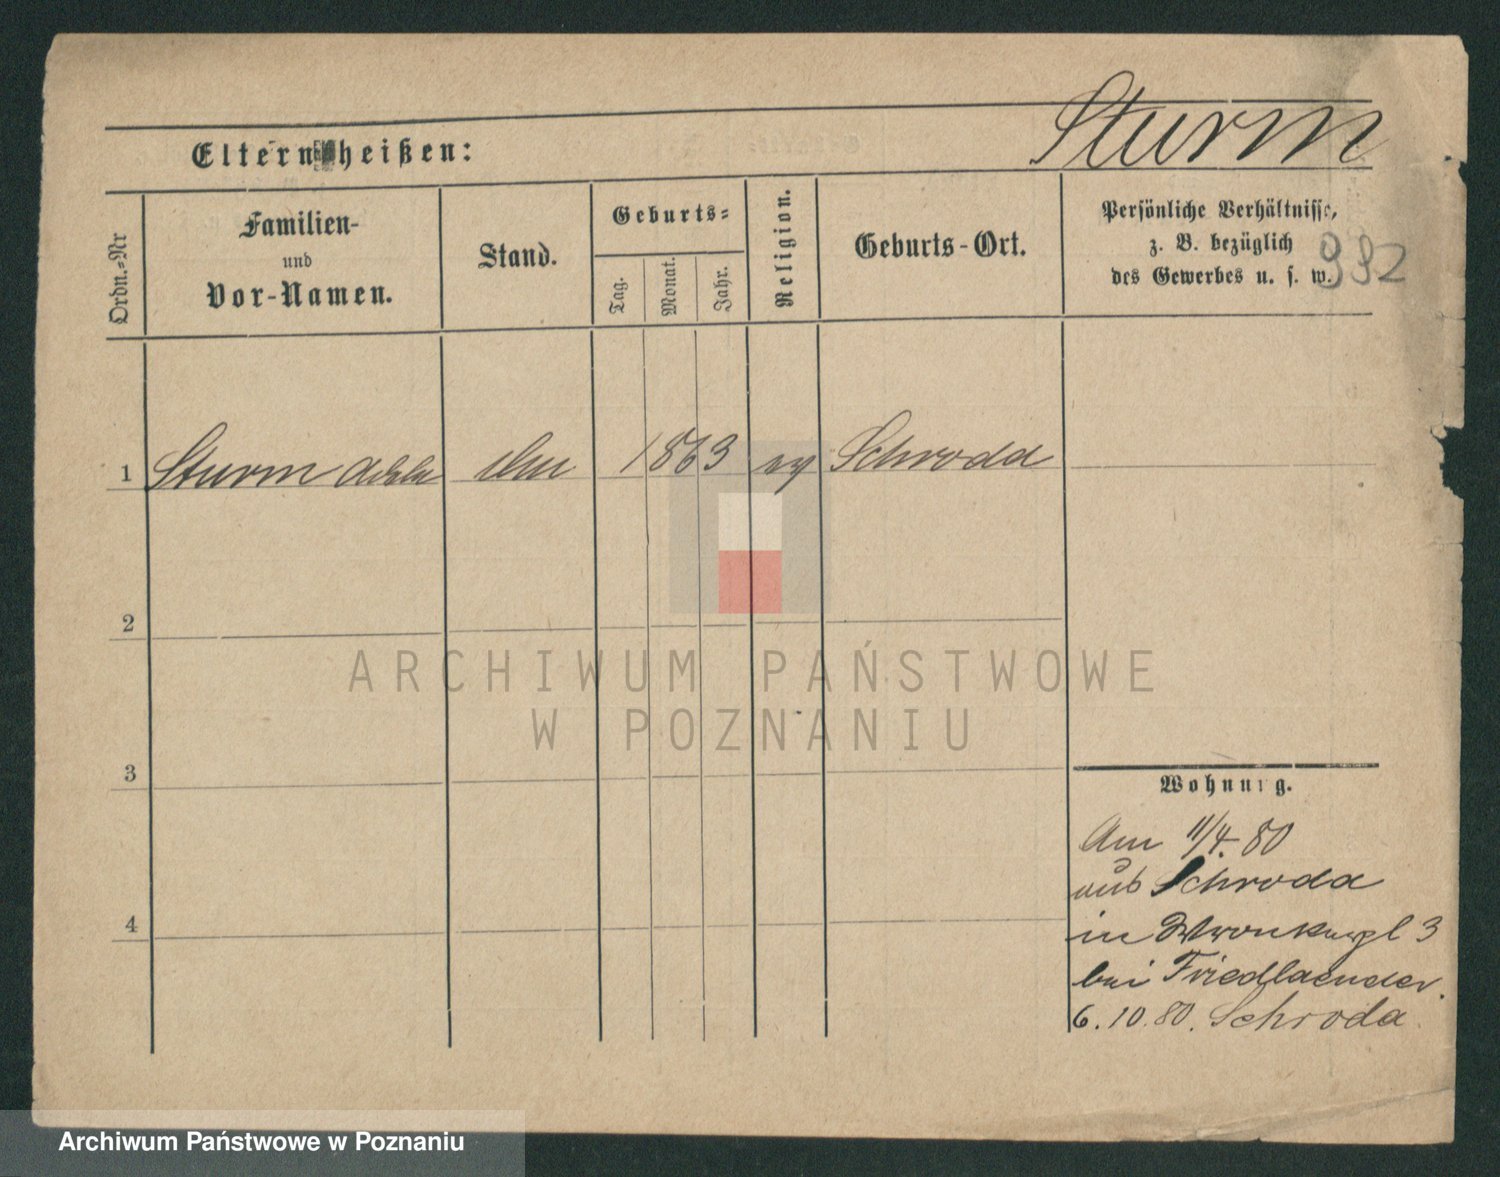 Sturm
Eltern heißen:
Ordn.=Nr
Familien-
und
Vor-Namen.
Stand.
Geburts=
Tag.
Monat.
Jahr.
Religion.
Geburts-Ort.
Persönliche Verhältnisse,
z. B. bezüglich
des Gewerbes u. s. w.
992
1 Sturm 1863 Schroda
2
3
4
ARCHIWUM PAŃSTWOWE
W POZNANIU
Wohnung.
Am 11/4. 80
aus Schroda
in 3
bei Friedlaender.
6. 10. 80. Schroda
Archiwum Państwowe w Poznaniu